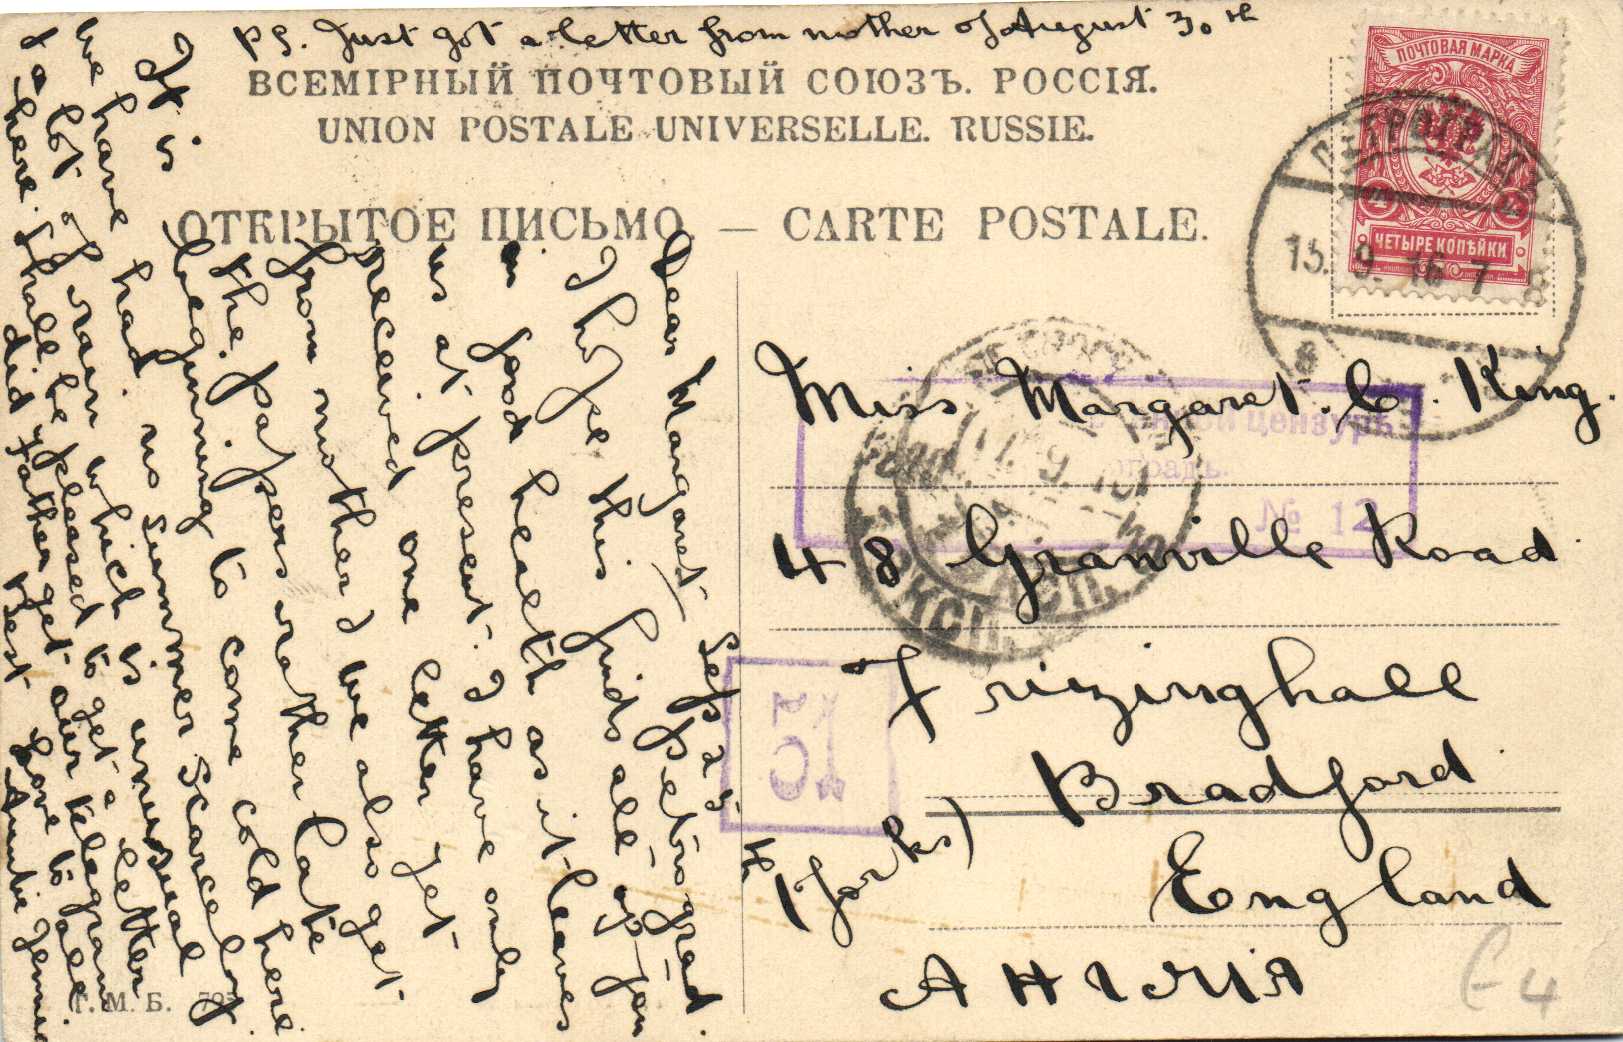 P.S. Just got a letter from mother of August 30th
ВСЕМІРНЫЙ ПОЧТОВЫЙ СОЮЗЪ. РОССІЯ.
UNION POSTALE UNIVERSELLE. RUSSIE.
ОТКРЫТОЕ ПИСЬМО. — CARTE POSTALE.
ПОЧТОВАЯ МАРКА
4 4
ЧЕТЫРЕ КОПѢЙКИ
ПЕТРОГРАДЪ
15. 9. 16 7
8
Miss Margaret. C. King.
48 Granville Road
Frizinghall
Bradford
(Yorks)
England
АНГЛІЯ
цензурѣ
№ 12
17. 9. 16
ЭКСП.
Petrograd.
Sep 2 5th
Dear Margaret
I hope this finds all of you
in good health as it leaves
us at present. I have only
received one letter yet
from mother & we also get
the papers rather late
It is beginning to come cold here
we have had no summer scarcely
& a lot of rain which is unusual
here. Shall be pleased to get a letter
did father get our telegram
Best Love to all
Auntie Jennie
Г. М. Б.
E 4